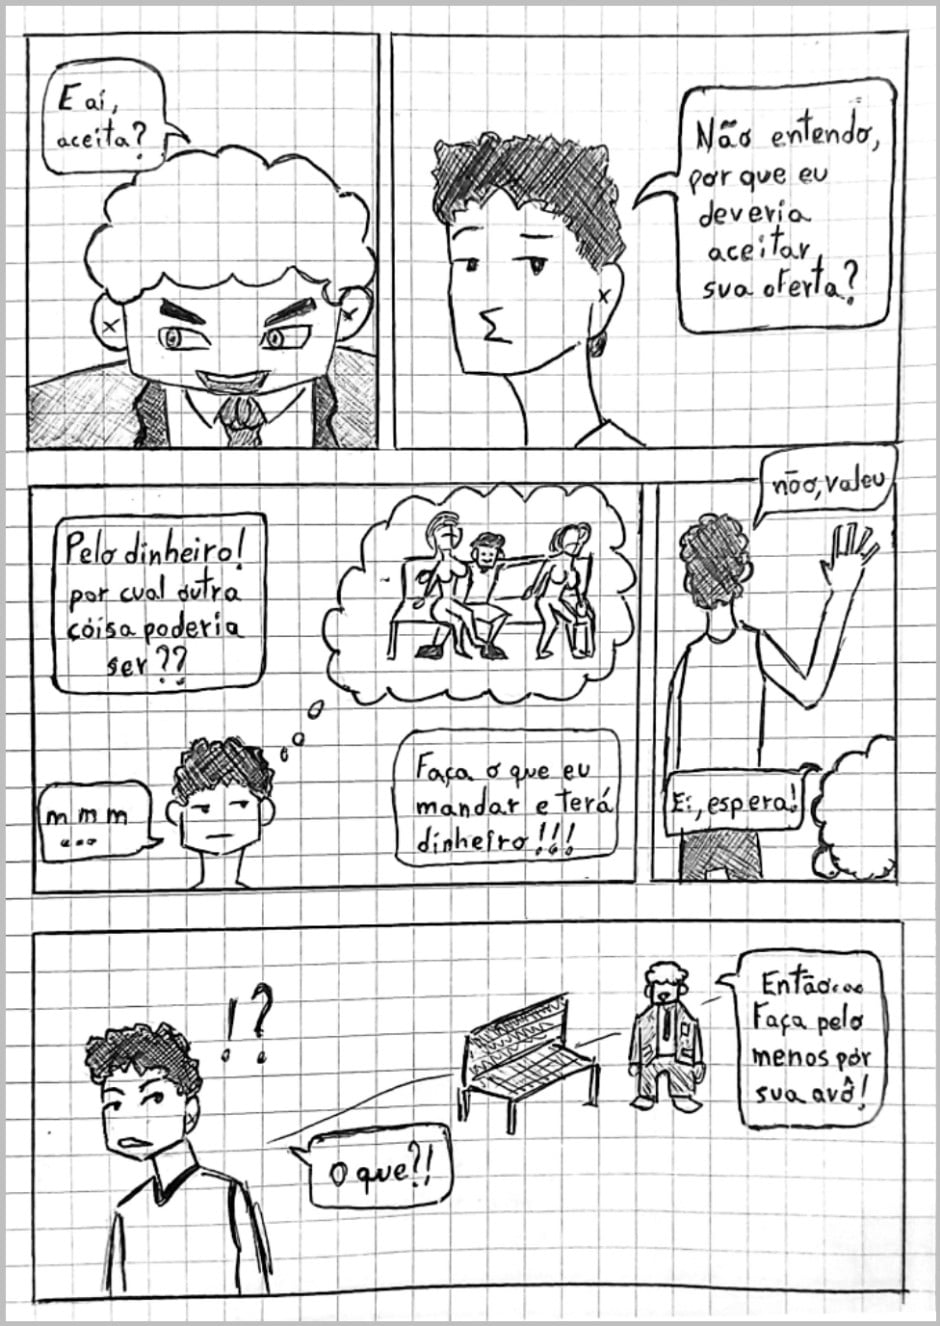 E aí,
aceita?
Não entendo,
por que eu
deveria
aceitar
sua oferta?
Pelo dinheiro!
por cual outra
cóisa poderia
ser??
mmm
...
Faça o que eu
mandar e terá
dinheiro!!!
não, valeu
Ei, espera!
!?
O que?!
Então...
Faça pelo
menos por
sua avô!